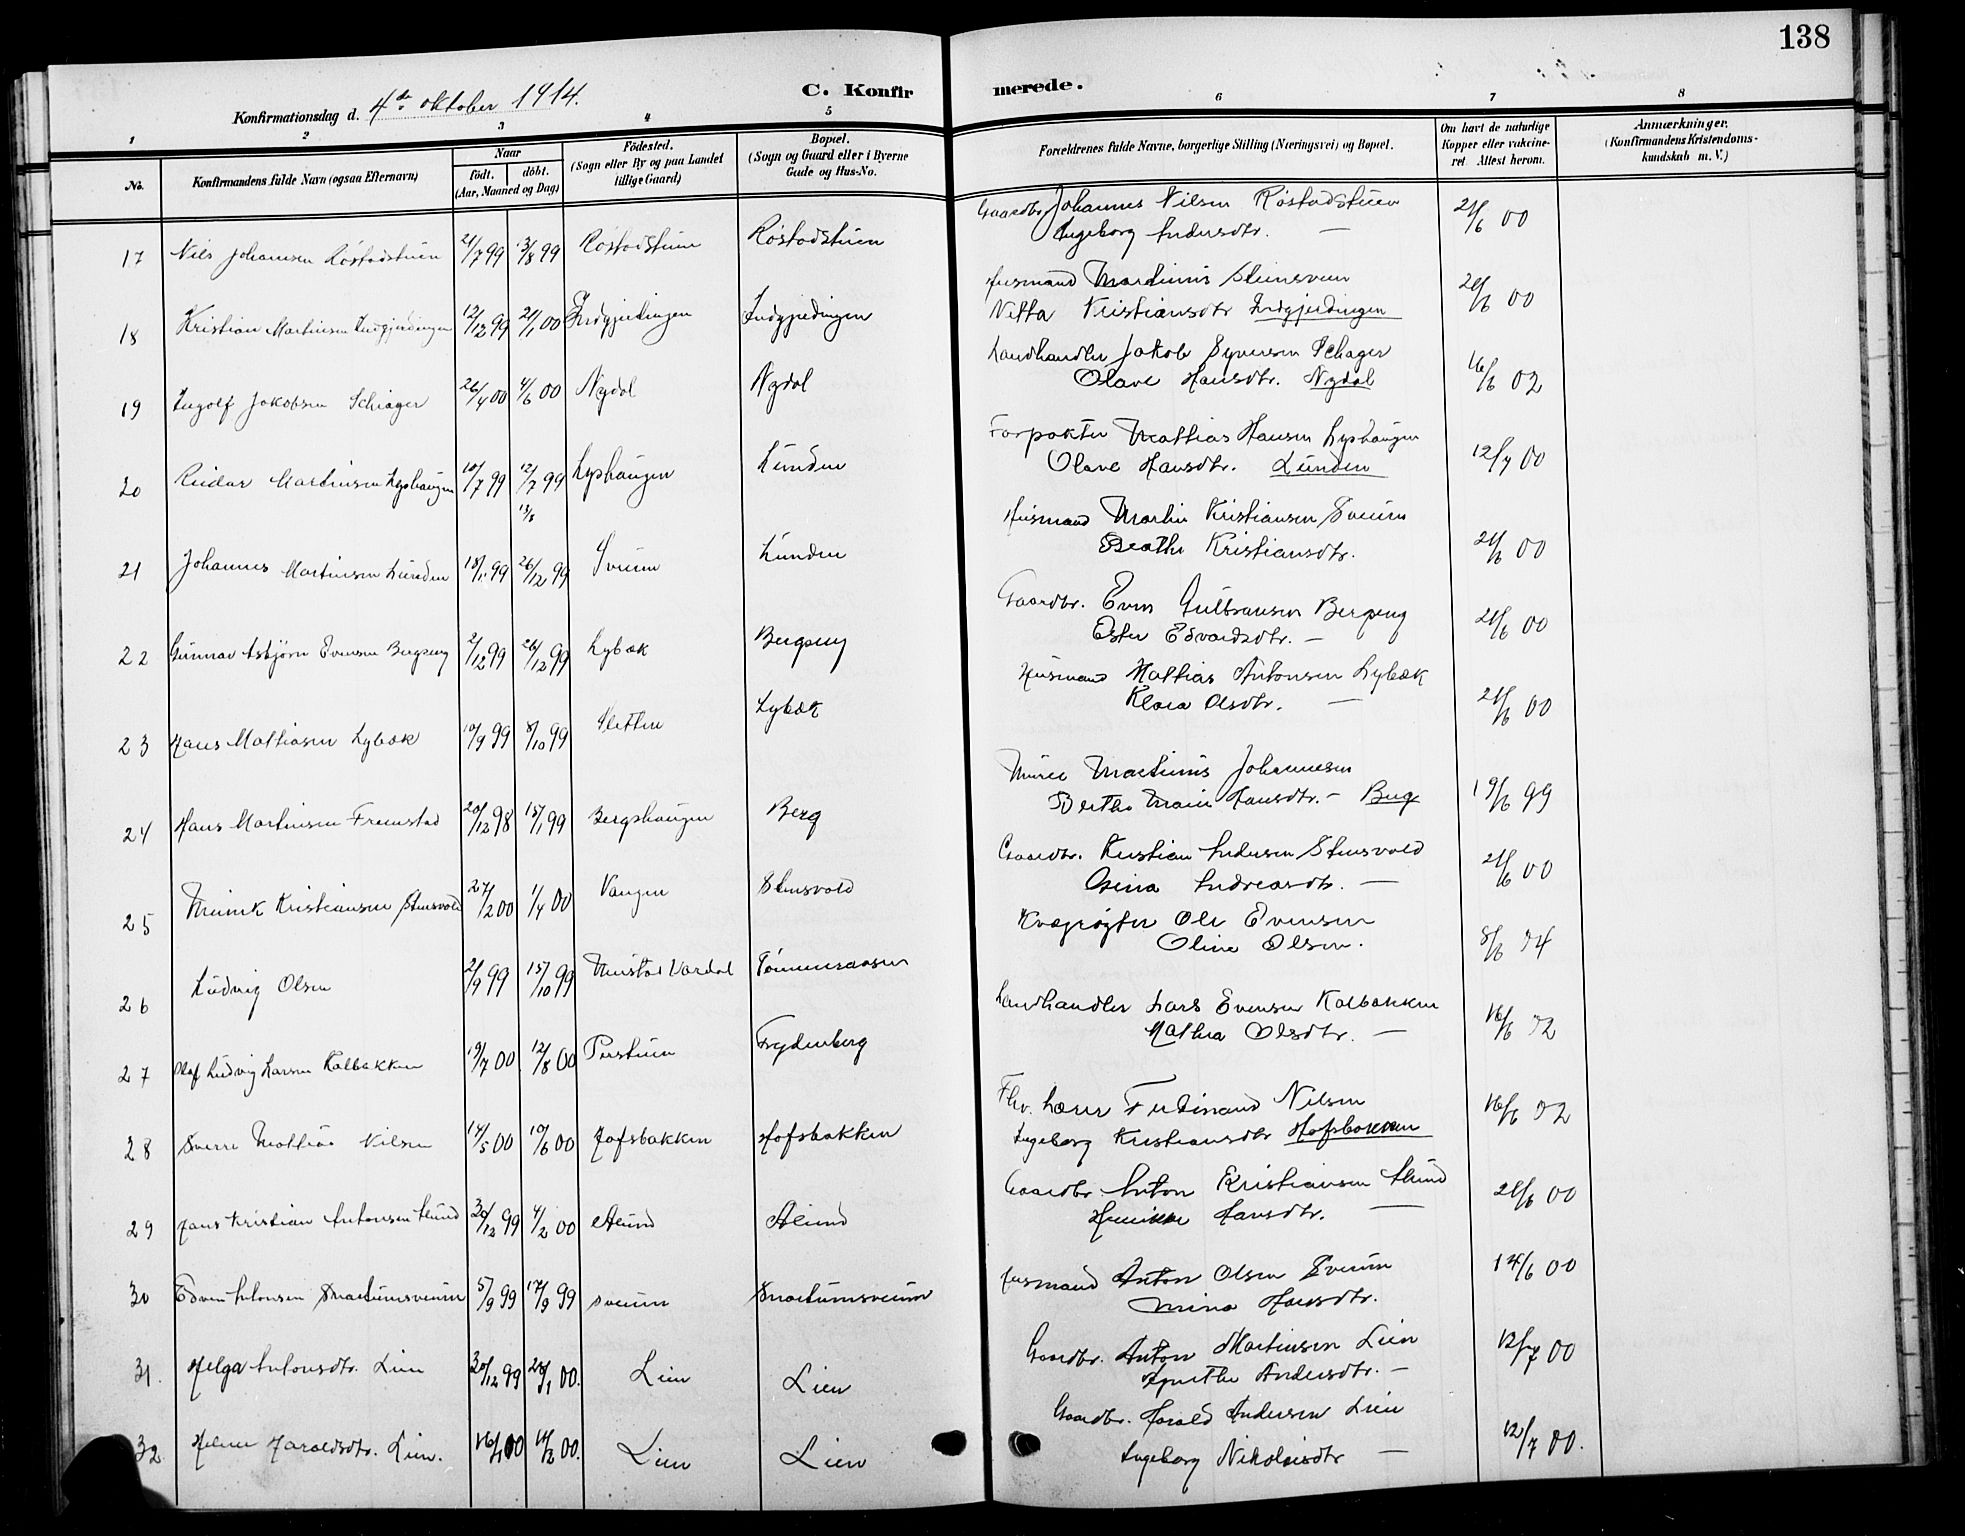 138
Konfirmationsdag d. 4de oktober 1914.
C. Konfir
merede.
1 2 3 4 5 6 7 8
No.
Konfirmandens fulde Navn (ogsaa Efternavn)
Naar
født. døbt.
(Aar, Maaned og Dag)
Födested.
(Sogn eller By og paa Landet
tillige Gaard)
Bopæl.
(Sogn og Gaard eller i Byerne
Gade og Hus-No.
Forældrenes fulde Navne, borgerlige Stilling (Næringsvei) og Bopæl.
Om havt de naturlige
Kopper eller vakcine-
ret. Attest herom.
Anmærkninger.
(Konfirmandens Kristendoms-
kundskab m. V.)
Gaardbr. Johannes Nilsen Røstadstuen
17 Nils Johansen Røstadstuen 21/7 99 13/8 99 Røstadstuen Røstadstuen Ingeborg Andersdtr. — 21/6 00
Husmand Martinius Stensveen
18 Kristian Martinsen Indgjerdingen 12/12 99 21/1 00 Indgjerdingen Indgjerdingen Netta Kristiansdtr Indgjerdingen 21/6 00
Landhandler Jakob Syversen Schager
19 Ingolf Jakobsen Schiager 26/4 00 4/6 00 Nydal Nydal Olave Hansdtr. Nydal 16/6 02
Forpakter Mathias Hansen Lyshaugen
20 Reidar Martinsen Lyshaugen 10/7 99 12/7 99 13/8 Lyshaugen Lunden Olave Hansdtr. Lunden 12/7 00
Husmand Martin Kristiansen Sveum
21 Johannes Martinsen Lunden 99 26/12 99 Sveum Lunden Beathe Kristiansdtr. 21/6 00
Gaardbr. Even Gulbransen Bergseng
22 Gunnar Asbjørn Evensen Bergseng 2/12 99 26/12 99 Lybæk Bergseng Ester Edvardsdtr. — 21/6 00
Husmand Mathias Antonsen Lybæk
23 Hans Mathiasen Lybæk 10/9 99 8/10 99 Sletten Lybæk Klara Olsdtr. — 21/6 00
Murer Martinius Johannesen
24 Hans Martinsen Fremstad 20/12 98 15/1 99 Bergshaugen Berg Berthe Marie Hansdtr. — Berg 19/6 99
Gaardbr. Kristian Andersen Stensvold
25 Kristiansen Stensvold 27/2 00 1/4 00 Vangen Stensvold Andreasdtr. — 21/6 00
Kvægrøgter Ole Evensen
26 Ludvig Olsen 2/9 99 15/10 99 Mustad Vardal Tømmeraasen Oline Olsen. 8/6 04
Landhandler Lars Evensen Kalbakken
27 Olaf Ludvig Larsen Kalbakken 19/7 00 12/8 00 Perstuen Frydenberg Mathea Olsdtr. — 16/6 02
Fhv. Lærer Ferdinand Nilsen
28 Sverre Mathias Nilsen 14/5 00 10/6 00 Hofsbakken Hofsbakken Ingeborg Kristiansdtr Hofsbakken 16/6 02
Gaardbr. Anton Kristiansen Alund
29 Hans Kristian Antonsen Alund 30/12 99 4/2 00 Alund Alund Hansdtr. — 21/6 00
Husmand Anton Olsen Sveum
30 Edvin Antonsen Smedumsveum 5/9 99 17/9 99 Sveum Smedumsveum Mina Hansdtr. 14/6 00
Gaardbr. Anton Martinsen Lien
31. Helga Antonsdtr. Lien 30/12 99 28/1 00. Lien Lien Agnethe Andersdtr. — 12/7 00
Gaardbr. Harald Andersen Lien
32 Helene Haraldsdtr. Lien. 16/1 00 11/2 00. Lien Lien Ingeborg Nikolaisdtr — 12/7 00.